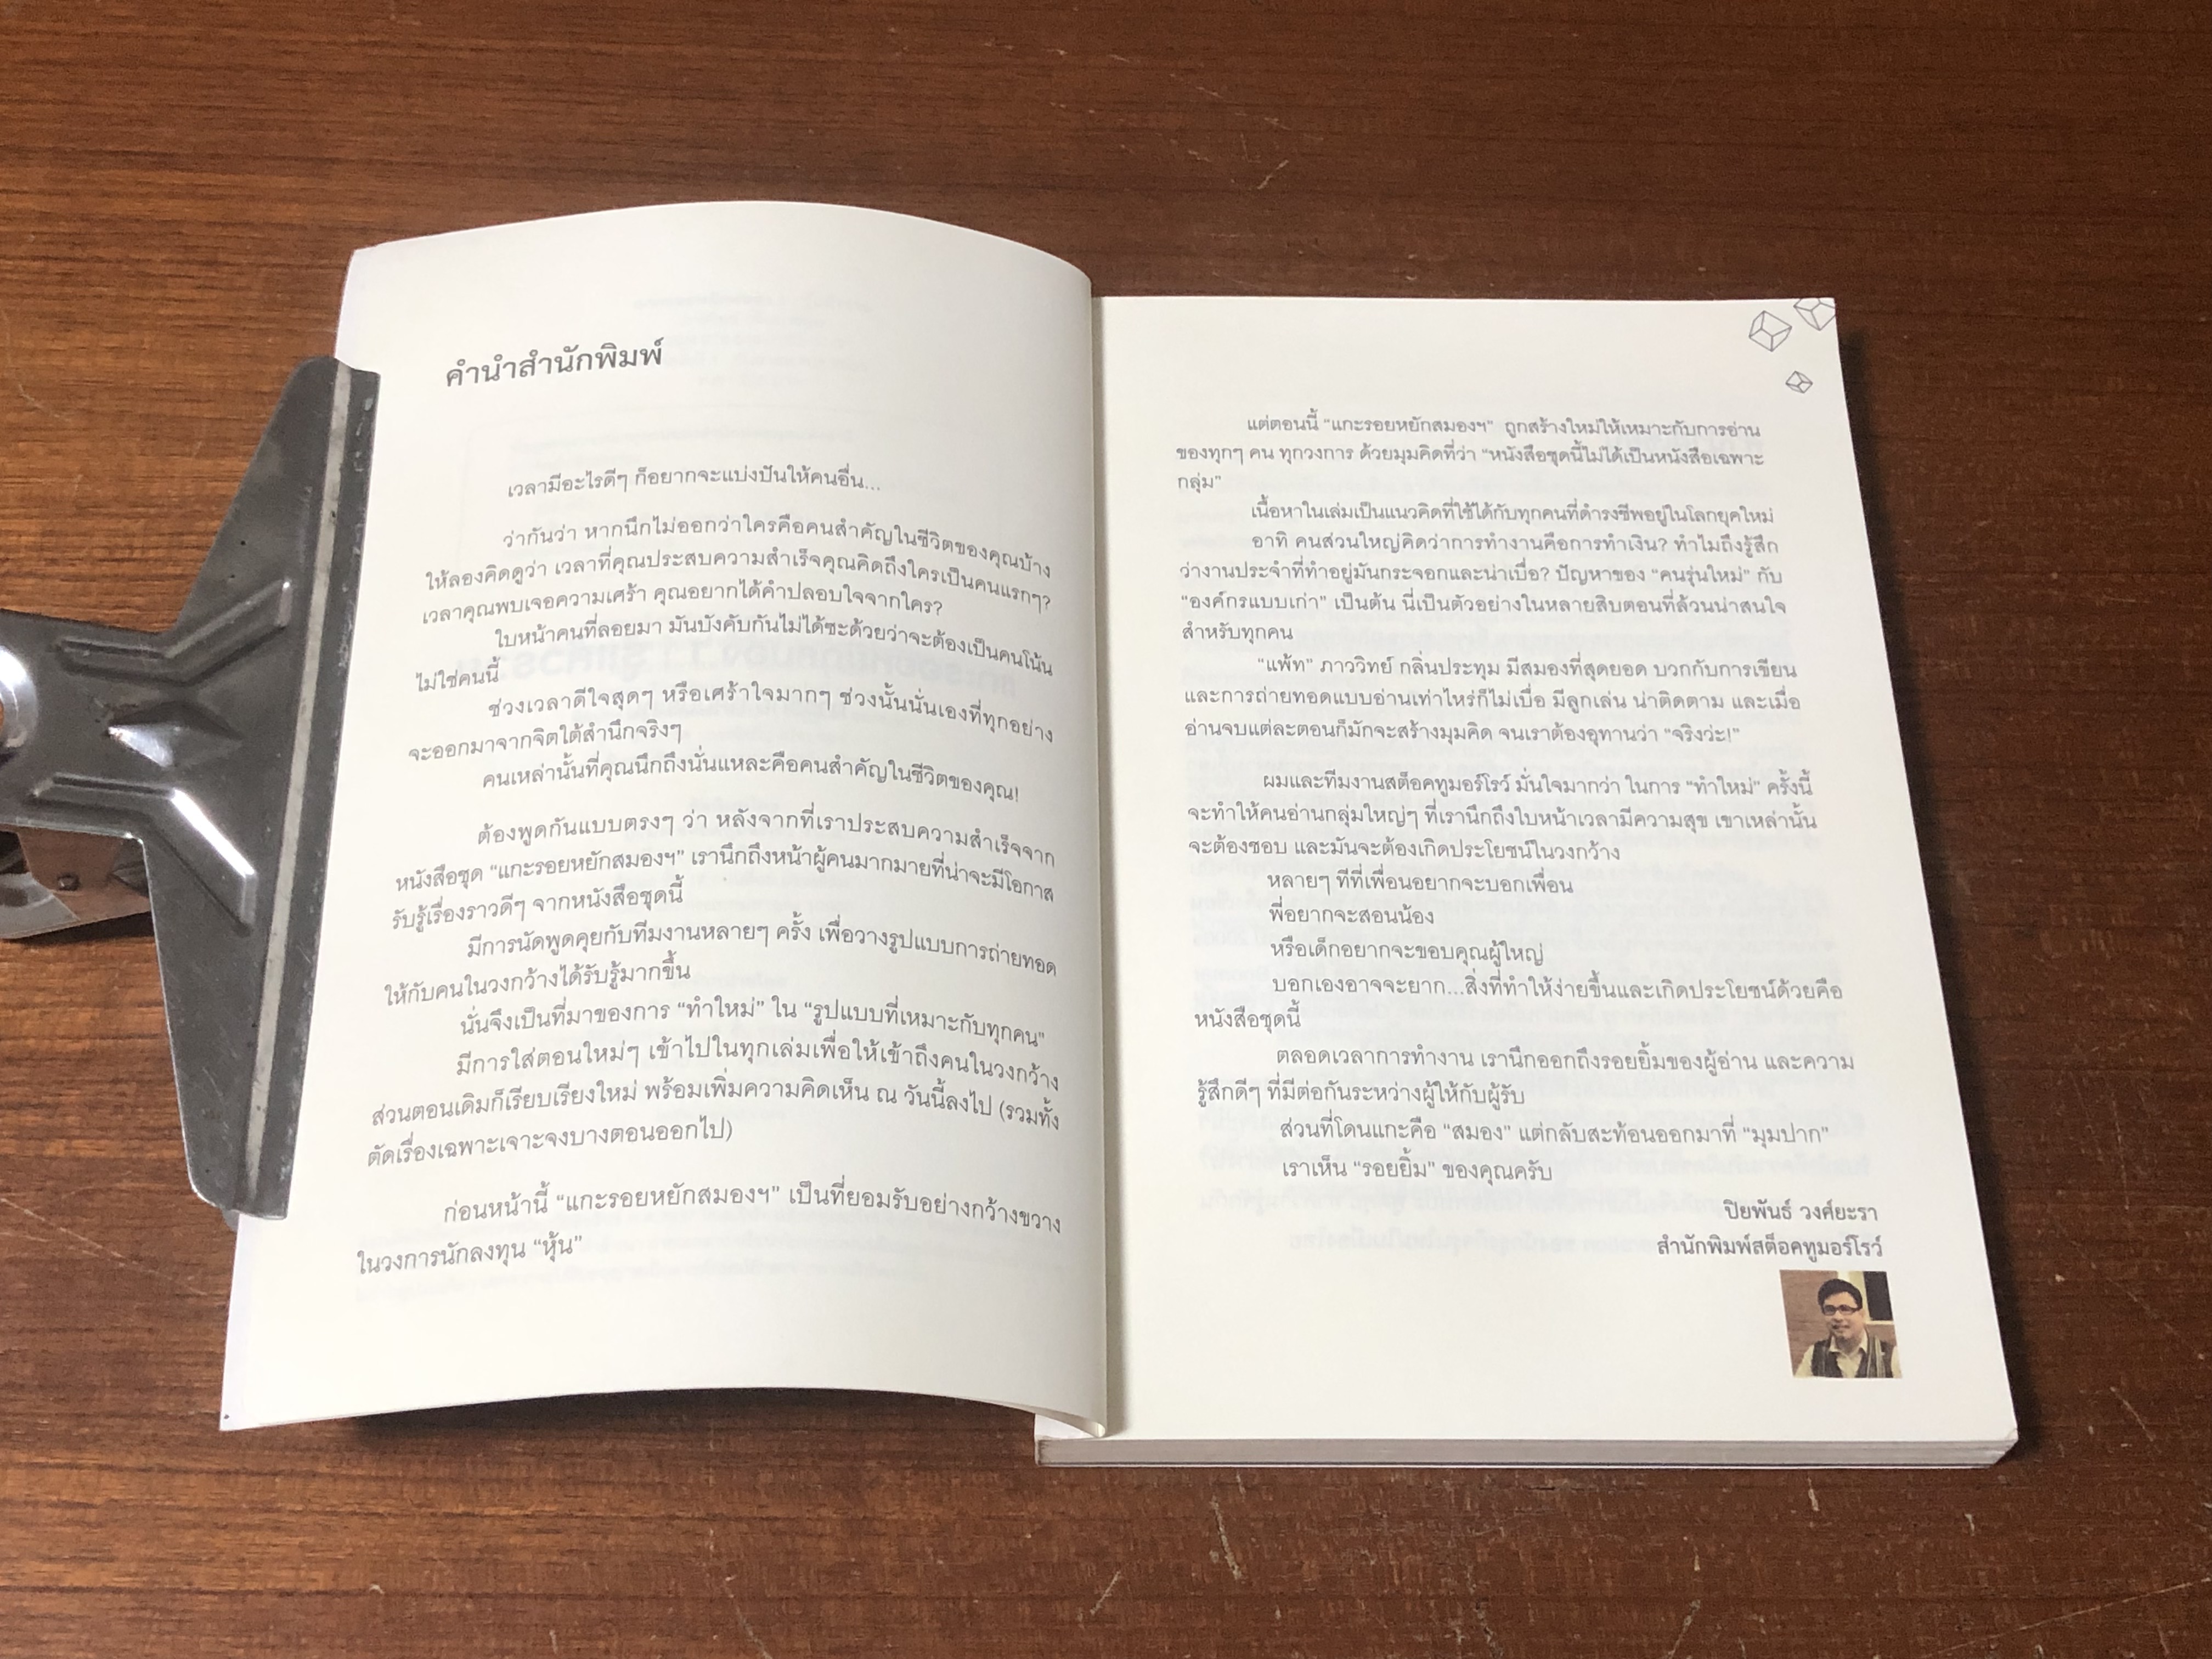 คำนำสำนักพิมพ์
เวลามีอะไรดีๆ ก็อยากจะแบ่งปันให้คนอื่น...
ว่ากันว่า หากนึกไม่ออกว่าใครคือคนสำคัญในชีวิตของคุณบ้าง
ให้ลองคิดดูว่า เวลาที่คุณประสบความสำเร็จคุณคิดถึงใครเป็นคนแรกๆ?
เวลาคุณพบเจอความเศร้า คุณอยากได้คำปลอบใจจากใคร?
ใบหน้าคนที่ลอยมา มันบังคับกันไม่ได้ซะด้วยว่าจะต้องเป็นคนโน้น
ไม่ใช่คนนี้
ช่วงเวลาดีใจสุดๆ หรือเศร้าใจมากๆ ช่วงนั้นนั่นเองที่ทุกอย่าง
จะออกมาจากจิตใต้สำนึกจริงๆ
คนเหล่านั้นที่คุณนึกถึงนั่นแหละคือคนสำคัญในชีวิตของคุณ!
ต้องพูดกันแบบตรงๆ ว่า หลังจากที่เราประสบความสำเร็จจาก
หนังสือชุด “แกะรอยหยักสมองฯ” เรานึกถึงหน้าผู้คนมากมายที่น่าจะมีโอกาส
รับรู้เรื่องราวดีๆ จากหนังสือชุดนี้
มีการนัดพูดคุยกับทีมงานหลายๆ ครั้ง เพื่อวางรูปแบบการถ่ายทอด
ให้กับคนในวงกว้างได้รับรู้มากขึ้น
นั่นจึงเป็นที่มาของการ “ทำใหม่” ใน “รูปแบบที่เหมาะกับทุกคน”
มีการใส่ตอนใหม่ๆ เข้าไปในทุกเล่มเพื่อให้เข้าถึงคนในวงกว้าง
ส่วนตอนเดิมก็เรียบเรียงใหม่ พร้อมเพิ่มความคิดเห็น ณ วันนี้ลงไป (รวมทั้ง
ตัดเรื่องเฉพาะเจาะจงบางตอนออกไป)
ก่อนหน้านี้ “แกะรอยหยักสมองฯ” เป็นที่ยอมรับอย่างกว้างขวาง
ในวงการนักลงทุน “หุ้น”
แต่ตอนนี้ “แกะรอยหยักสมองฯ” ถูกสร้างใหม่ให้เหมาะกับการอ่าน
ของทุกๆ คน ทุกวงการ ด้วยมุมคิดที่ว่า “หนังสือชุดนี้ไม่ได้เป็นหนังสือเฉพาะ
กลุ่ม”
เนื้อหาในเล่มเป็นแนวคิดที่ใช้ได้กับทุกคนที่ดำรงชีพอยู่ในโลกยุคใหม่
อาทิ คนส่วนใหญ่คิดว่าการทำงานคือการทำเงิน? ทำไมถึงรู้สึก
ว่างานประจำที่ทำอยู่มันกระจอกและน่าเบื่อ? ปัญหาของ “คนรุ่นใหม่” กับ
“องค์กรแบบเก่า” เป็นต้น นี่เป็นตัวอย่างในหลายสิบตอนที่ล้วนน่าสนใจ
สำหรับทุกคน
“แพ้ท” ภาววิทย์ กลิ่นประทุม มีสมองที่สุดยอด บวกกับการเขียน
และการถ่ายทอดแบบอ่านเท่าไหร่ก็ไม่เบื่อ มีลูกเล่น น่าติดตาม และเมื่อ
อ่านจบแต่ละตอนก็มักจะสร้างมุมคิด จนเราต้องอุทานว่า “จริงว่ะ!”
ผมและทีมงานสต็อคทูมอร์โรว์ มั่นใจมากว่า ในการ “ทำใหม่” ครั้งนี้
จะทำให้คนอ่านกลุ่มใหญ่ๆ ที่เรานึกถึงใบหน้าเวลามีความสุข เขาเหล่านั้น
จะต้องชอบ และมันจะต้องเกิดประโยชน์ในวงกว้าง
หลายๆ ทีที่เพื่อนอยากจะบอกเพื่อน
พี่อยากจะสอนน้อง
หรือเด็กอยากจะขอบคุณผู้ใหญ่
บอกเองอาจจะยาก...สิ่งที่ทำให้ง่ายขึ้นและเกิดประโยชน์ด้วยคือ
หนังสือชุดนี้
ตลอดเวลาการทำงาน เรานึกออกถึงรอยยิ้มของผู้อ่าน และความ
รู้สึกดีๆ ที่มีต่อกันระหว่างผู้ให้กับผู้รับ
ส่วนที่โดนแกะคือ “สมอง” แต่กลับสะท้อนออกมาที่ “มุมปาก”
เราเห็น “รอยยิ้ม” ของคุณครับ
ปิยพันธ์ วงศ์ยะรา
สำนักพิมพ์สต็อคทูมอร์โรว์